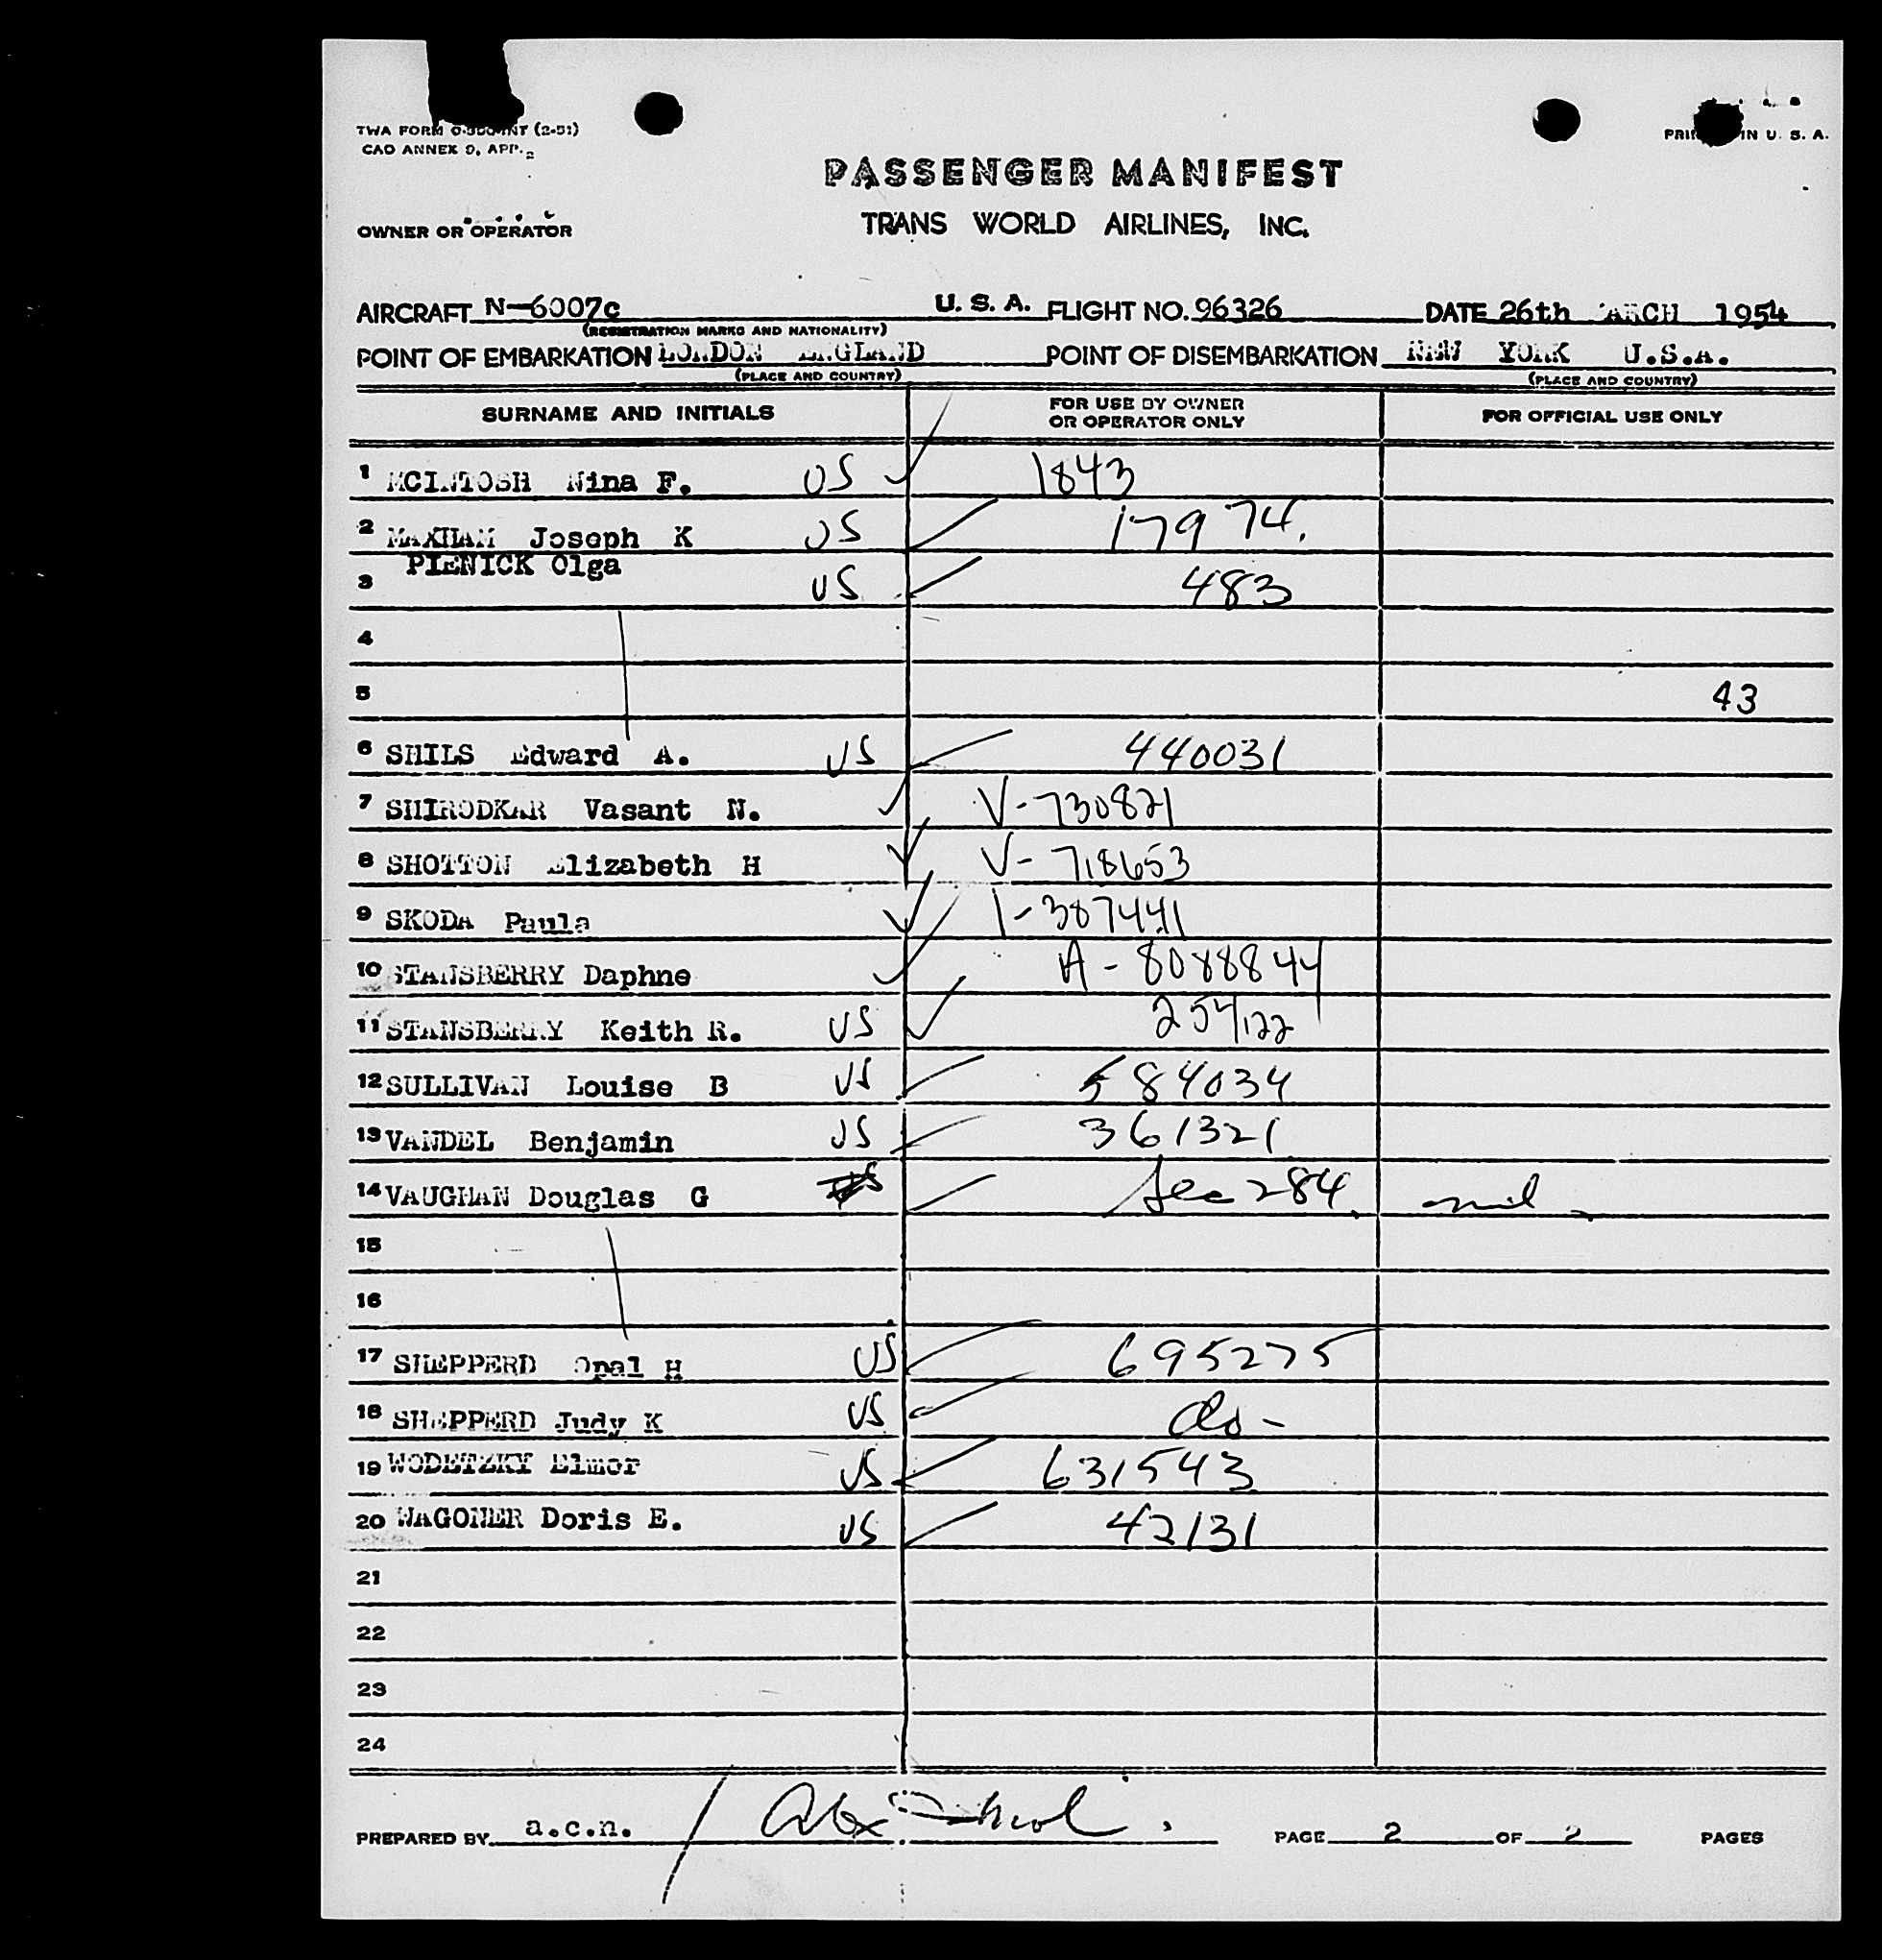 TWA FORM (2-51)
CAO ANNEX 9, APP. 2
PRINTED IN U. S. A.
PASSENGER MANIFEST
TRANS WORLD AIRLINES, INC.
OWNER OR OPERATOR
AIRCRAFT N-6007C U. S. A. FLIGHT NO. 96326 DATE 26th MARCH 1954
(REGISTRATION MARKS AND NATIONALITY)
POINT OF EMBARKATION LONDON ENGLAND POINT OF DISEMBARKATION NEW YORK U.S.A.
(PLACE AND COUNTRY) (PLACE AND COUNTRY)
SURNAME AND INITIALS FOR USE BY OWNER OR OPERATOR ONLY FOR OFFICIAL USE ONLY
1 MCINTOSH Nina F. US 1843
2 MAXHAM Joseph K US 17974.
3 PIENICK Olga US 483
4
5 43
6 SHILS Edward A. US 440031
7 SHIRODKAR Vasant N. V-730821
8 SHOTTON Elizabeth H V-718653
9 SKODA Paula I-387441
10 STANSBERRY Daphne A-8088844
11 STANSBERRY Keith R. US 254122
12 SULLIVAN Louise B US 584034
13 VANDEL Benjamin US 361321
14 VAUGHAN Douglas G US Sec 284.
15
16
17 SHEPPERD Opal H US 695275
18 SHEPPERD Judy K US do-
19 WODETZKY Elmer US 631543
20 WAGONER Doris E. US 42131
21
22
23
24
PREPARED BY a.c.n. / PAGE 2 OF 2 PAGES